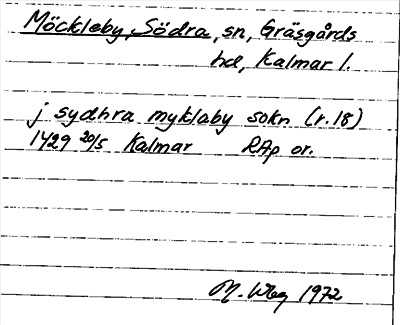 Möckleby, Södra, sn, Gräsgårds
hd, Kalmar l.
j sydhra myklaby sokn (r. 18)
1429 20/5 Kalmar RAp or.
M. Wbg 1972